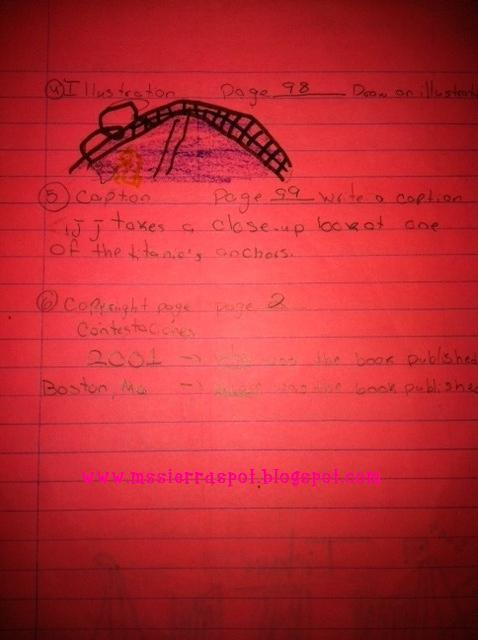 4 Illustraton Page 98 Draw an illustrat
5 Capton Page 99 Write a caption
ijj takes a close-up look at one
of the titanic's anchors.
6 Copyright page page 2
Contestaciones
2001 → was the book published
Boston, Ma → was the book published
www.mssierraspot.blogspot.com